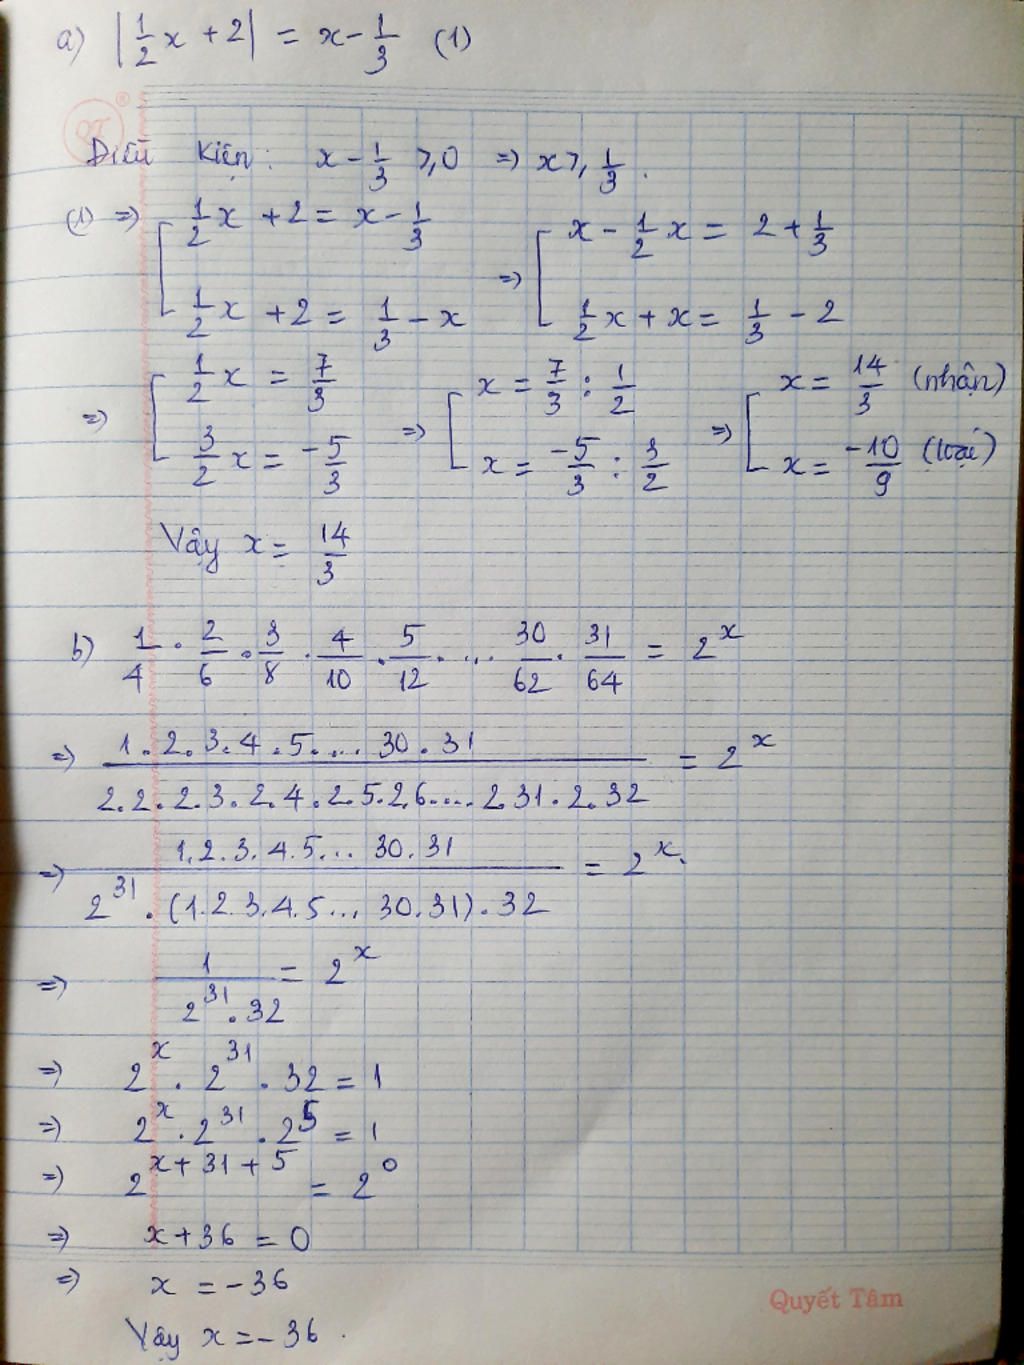 a) |1/2 x + 2| = x - 1/3 (1)
QT ®
Điều kiện: x - 1/3 ≥ 0 => x ≥ 1/3.
(1) => [ 1/2 x + 2 = x - 1/3 ; 1/2 x + 2 = 1/3 - x => [ x - 1/2 x = 2 + 1/3 ; 1/2 x + x = 1/3 - 2
=> [ 1/2 x = 7/3 ; 3/2 x = -5/3 => [ x = 7/3 : 1/2 ; x = -5/3 : 3/2 => [ x = 14/3 (nhận) ; x = -10/9 (loại)
Vậy x = 14/3
b) 1/4 . 2/6 . 3/8 . 4/10 . 5/12 . ... 30/62 . 31/64 = 2^x
=> (1.2.3.4.5.... 30.31)/(2.2.2.3.2.4.2.5.2.6.... 2.31.2.32) = 2^x
=> (1.2.3.4.5... 30.31)/(2^31 . (1.2.3.4.5... 30.31).32) = 2^x.
=> 1/(2^31 . 32) = 2^x
=> 2^x . 2^31 . 32 = 1
=> 2^x . 2^31 . 2^5 = 1
=> 2^(x+31+5) = 2^0
=> x + 36 = 0
=> x = -36
Vậy x = -36.
Quyết Tâm